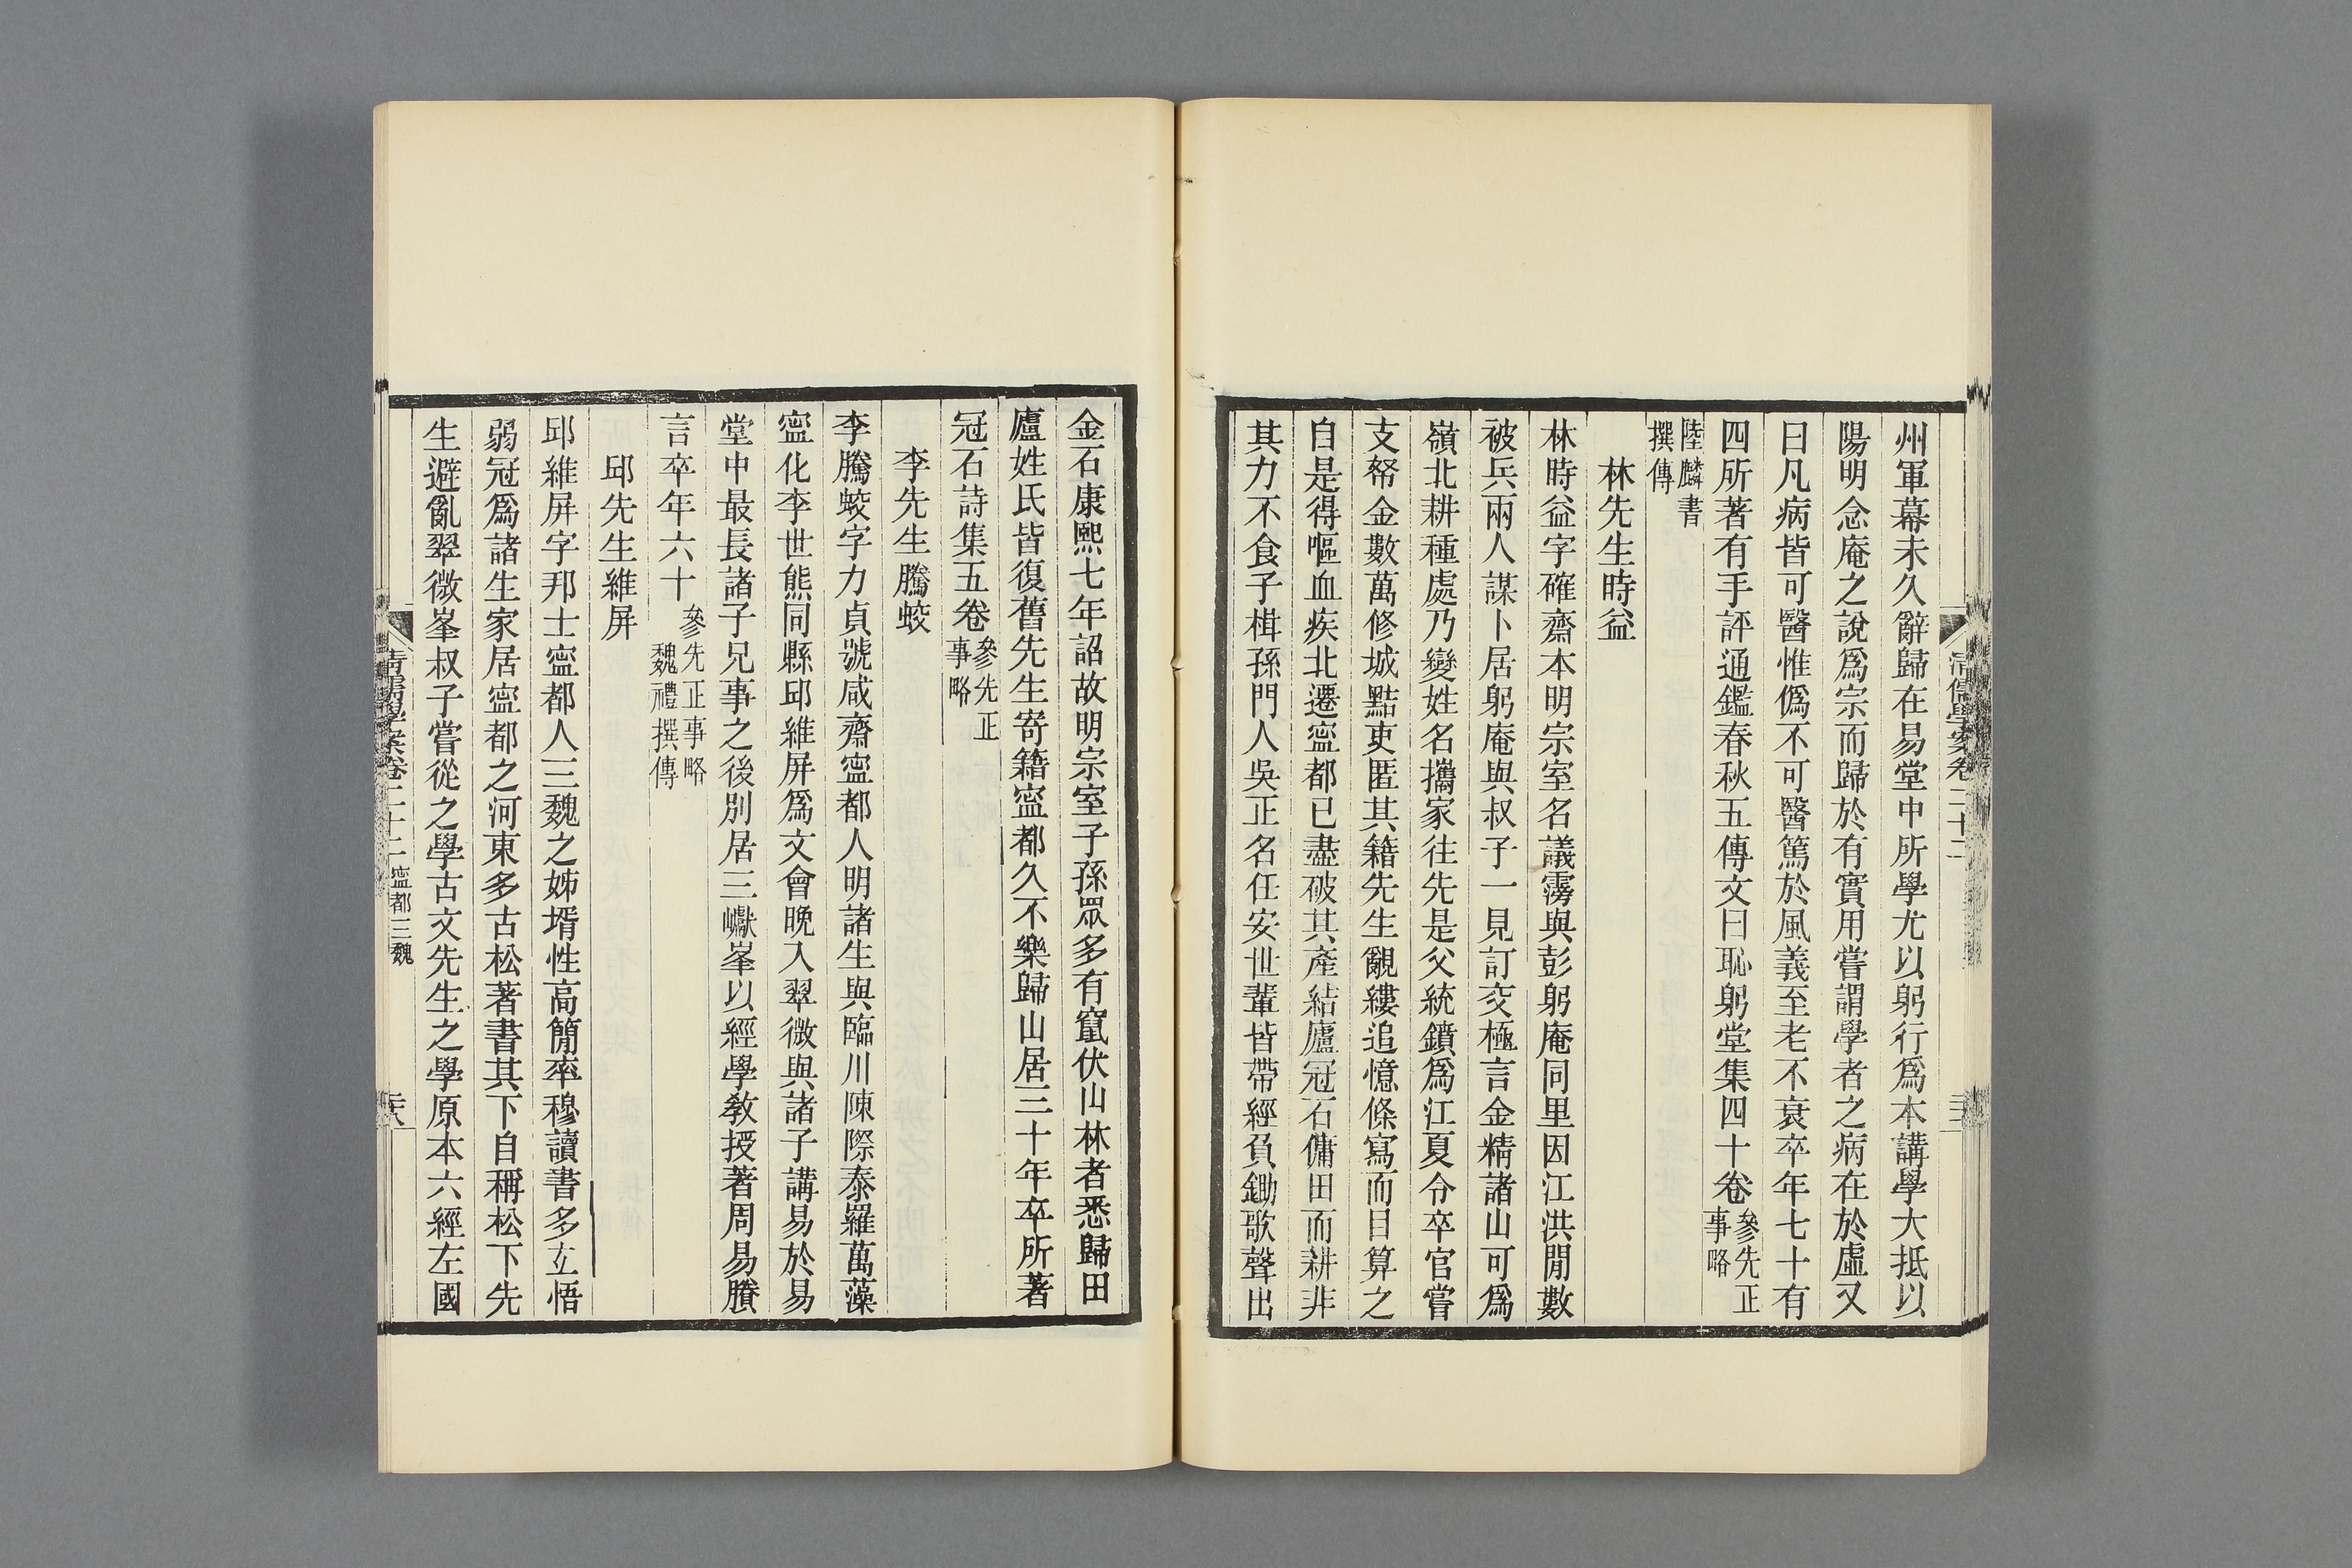 州軍幕未久辭歸在易堂中所學尤以躬行爲本講學大抵以
陽明念庵之說爲宗而歸於有實用嘗謂學者之病在於虛又
曰凡病皆可醫惟僞不可醫篤於風義至老不衰卒年七十有
四所著有手評通鑑春秋五傳文曰恥躬堂集四十卷參先正事略
陸麟書撰傳
林先生時益
林時益字確齋本明宗室名議霶與彭躬庵同里因江洪閒數
被兵兩人謀卜居躬庵與叔子一見訂交極言金精諸山可爲
嶺北耕種處乃變姓名攜家往先是父統鐼爲江夏令卒官嘗
支帑金數萬修城點吏匿其籍先生覼縷追憶條寫而目算之
自是得嘔血疾北遷寍都已盡破其產結廬冠石傭田而耕非
其力不食子楫孫門人吳正名任安世輩皆帶經負鋤歌聲出
清儒學案卷二十二
金石康熙七年詔故明宗室子孫眾多有竄伏山林者悉歸田
廬姓氏皆復舊先生寄籍寍都久不樂歸山居三十年卒所著
冠石詩集五卷參先正事略
李先生騰蛟
李騰蛟字力貞號咸齋寍都人明諸生與臨川陳際泰羅萬藻
寍化李世熊同縣邱維屏爲文會晚入翠微與諸子講易於易
堂中最長諸子兄事之後別居三巘峯以經學教授著周易賸
言卒年六十參先正事略魏禮撰傳
邱先生維屏
邱維屏字邦士寍都人三魏之姊壻性高簡率穆讀書多立悟
弱冠爲諸生家居寍都之河東多古松著書其下自稱松下先
生避亂翠微峯叔子嘗從之學古文先生之學原本六經左國
清儒學案卷二十二 寍都三魏